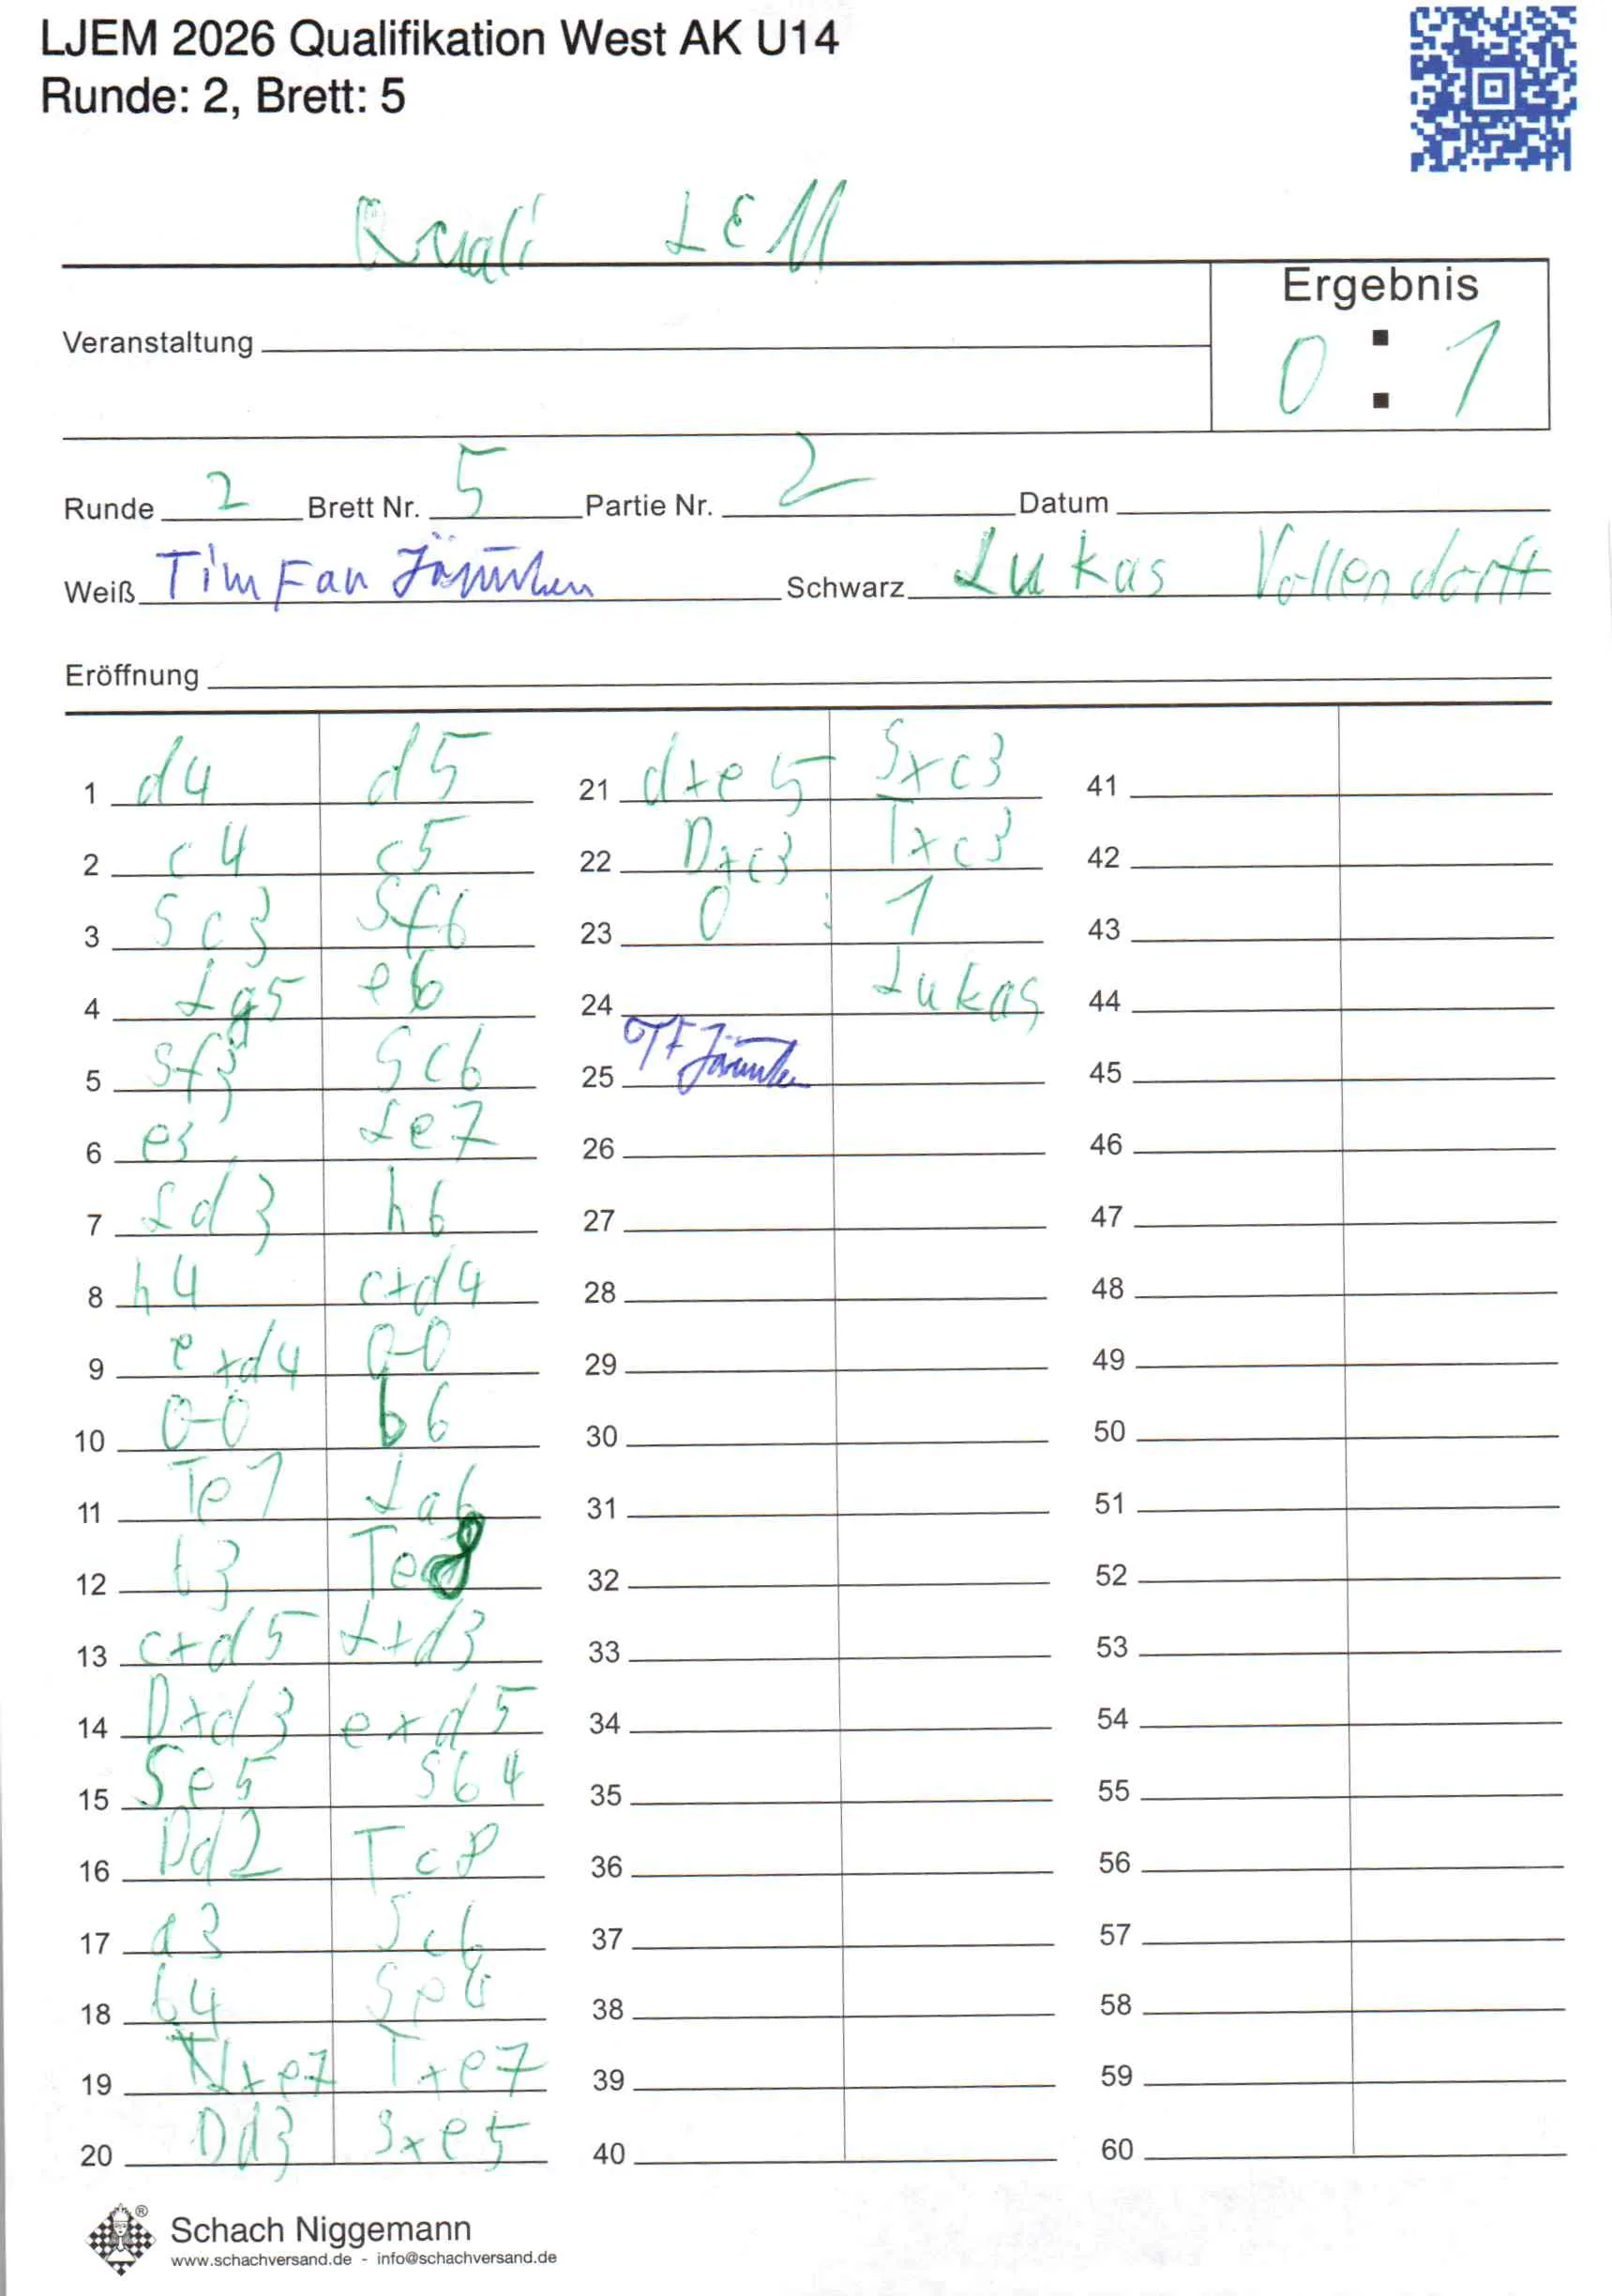 LJEM 2026 Qualifikation West AK U14
Runde: 2, Brett: 5
Quali LEM
Veranstaltung
Ergebnis
0 : 1
Runde 2 Brett Nr. 5 Partie Nr. 2 Datum
Weiß Tim Fan Schwarz Lukas Vollendorff
Eröffnung
1 d4 d5
2 c4 c5
3 Sc3 Sf6
4 Lg5 e6
5 Sf3 Sc6
6 e3 Le7
7 Ld3 h6
8 h4 c+d4
9 exd4 0-0
10 0-0 b6
11 Te1 La6
12 b3 Te8
13 c+d5 L+d3
14 D+d3 exd5
15 Se5 Sb4
16 Dd2 Tc8
17 a3 Sc6
18 b4 Se4
19 Lxe7 Txe7
20 Dd3 Sxe5
21 dxe5 Sxc3
22 Dxc3 Txc3
23 0 : 1
24 Lukas
25 TF
26
27
28
29
30
31
32
33
34
35
36
37
38
39
40
41
42
43
44
45
46
47
48
49
50
51
52
53
54
55
56
57
58
59
60
®
Schach Niggemann
www.schachversand.de - info@schachversand.de